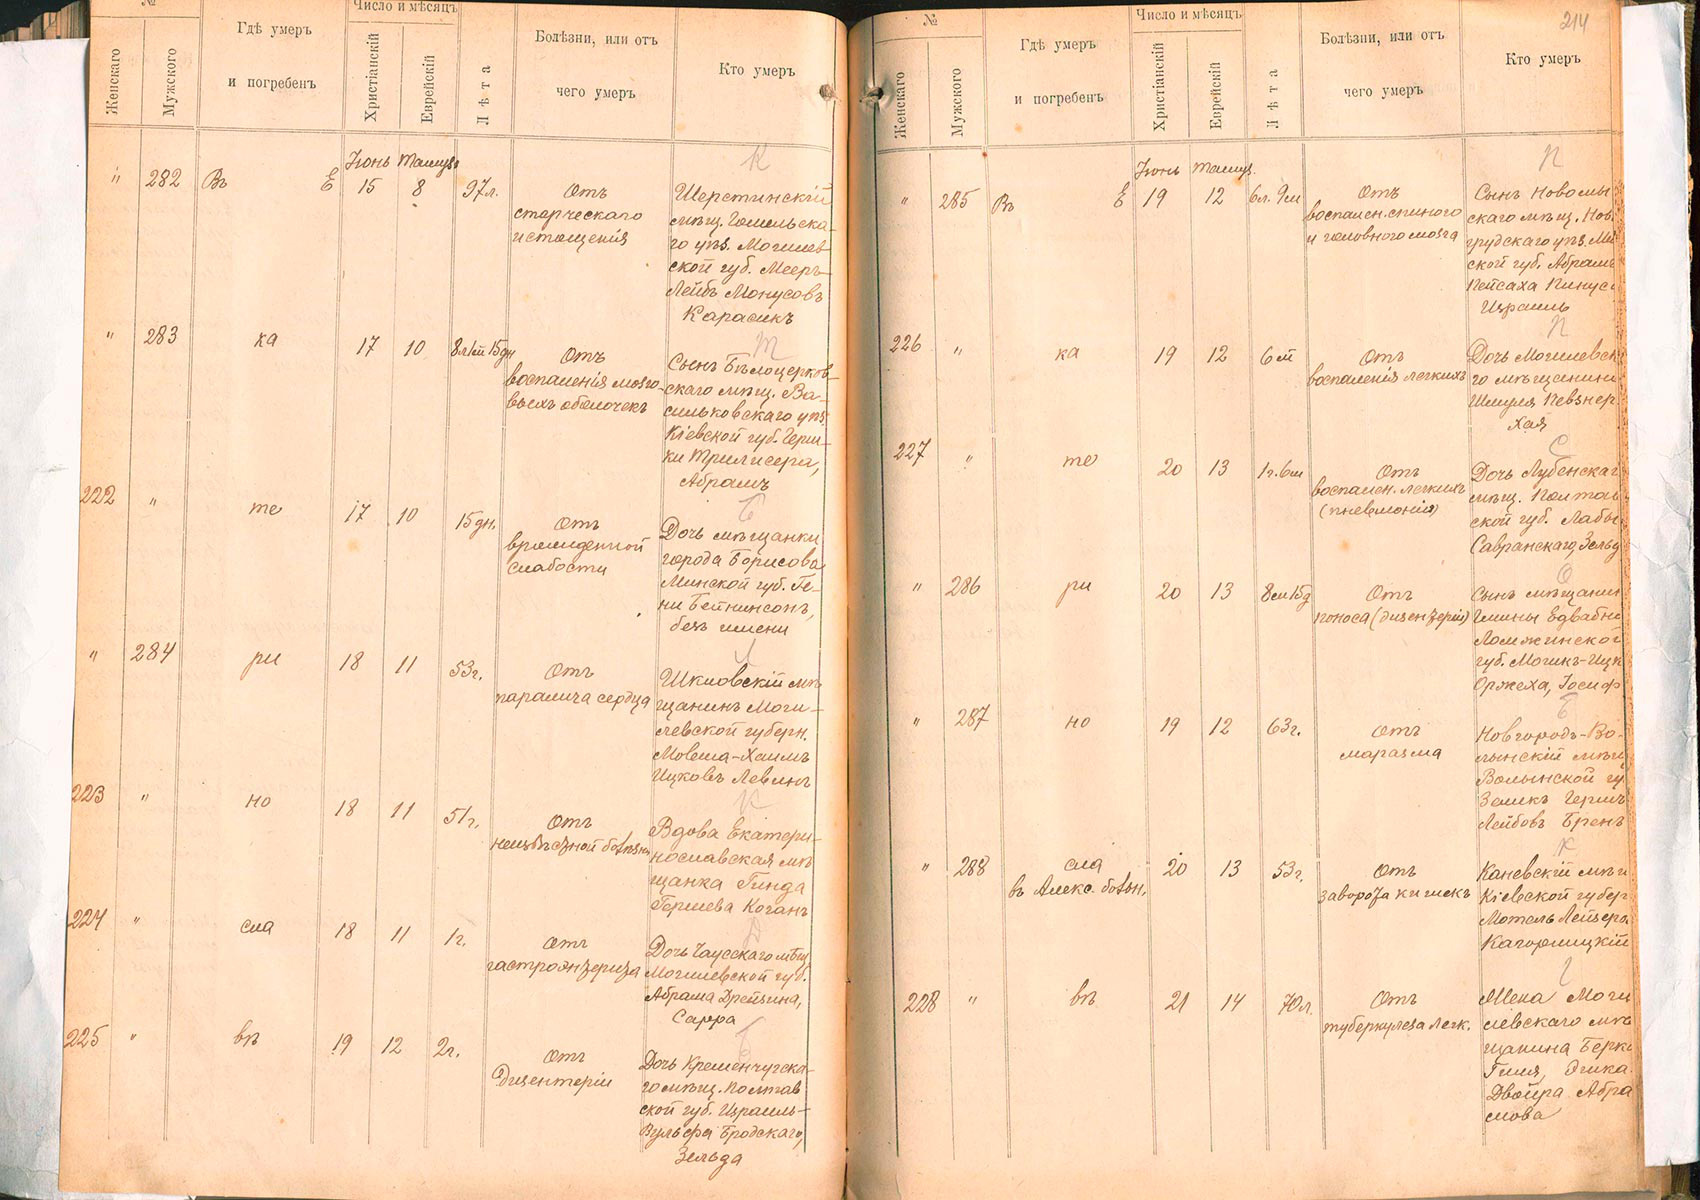 №
Женскаго
Мужского
Гдѣ умеръ
и погребенъ
Число и мѣсяцъ
Христіанскій
Еврейскій
Лѣта
Болѣзни, или отъ
чего умеръ
Кто умеръ
Іюнь Тамуз
К
" 282 Въ Е 15 8 97л.
Отъ
старческаго
истощенія
Шерстинскій
мѣщ. Гомельска-
го уѣз. Могилев-
ской губ. Мееръ-
Лейбъ Монусовъ
Карасикъ
" 283 ка 17 10 8л 1м 15дн
Отъ
воспаленія мозго-
выхъ оболочекъ
Т
Сынъ Бѣлоцерков-
скаго мѣщ. Ва-
сильковскаго уѣз.
Кіевской губ. Герш-
ки Трилисера,
Абрамъ
222 " те 17 10 15дн.
Отъ
врожденной
слабости
Б
Дочь мѣщанки
города Борисова
Минской губ. Ге-
ни Бейнинсонъ,
безъ имени
" 284 ри 18 11 53г.
Отъ
паралича сердца
Л
Шкловскій мѣ-
щанинъ Моги-
левской губерн.
Мовша-Хаимъ
Ицковъ Левинъ
223 " но 18 11 51г.
Отъ
неизвѣстной болѣзни
К
Вдова Екатери-
нославская мѣ-
щанка Гинда
Гершева Коганъ
224 " сла 18 11 1г.
Отъ
гастроэнтерита
Д
Дочь Чаусскаго мѣщ.
Могилевской губ.
Абрама Дрейзина,
Сарра
225 " въ 19 12 2г.
Отъ
Дизентеріи
Б
Дочь Кременчугска-
го мѣщ. Полтав
ской губ. Израиль-
Вульфа Бродскаго,
Зельда
214
№
Женскаго
Мужского
Гдѣ умеръ
и погребенъ
Число и мѣсяцъ
Христіанскій
Еврейскій
Лѣта
Болѣзни, или отъ
чего умеръ
Кто умеръ
Іюнь Тамуз.
П
" 285 Въ Е 19 12 6л. 9м
Отъ
воспален. спинного
и головного мозга
Сынъ Новомы
скаго мѣщ. Нов
грудскаго уѣз. Ми
ской губ. Абрамъ
Пейсаха Пинус
Израиль
226 " ка 19 12 6м
Отъ
воспаленія легкихъ
П
Дочь Могилевск
го мѣщанина
Шмуля Певзнер
Хая
227 " те 20 13 1г. 6м
Отъ
воспален. легкихъ
(пневмонія)
С
Дочь Лубенскаг
мѣщ. Полтав
ской губ. Лабы
Савранскаго, Зельд
" 286 ри 20 13 8м 15д
Отъ
поноса (дизентеріи)
О
Сынъ мѣщанин
Гмины Едвабн
Ломжинской
губ. Мошкъ-Ицк
Оржеха, Іосиф
" 287 но 19 12 63г.
Отъ
маразма
Б
Новгородъ-Во-
лынскій мѣщ
Волынской гу
Зеликъ Герш
Лейбовъ Брен
" 288 сла 20 13 53г.
въ Алекс. больн,
Отъ
заворота кишекъ
К
Каневскій мѣщ
Кіевской губер
Мотель Лейзер
Кагорлицкій
228 " въ 21 14 70л.
Отъ
туберкулеза легк.
Г
Жена Моги
левскаго мѣ
щанина Берк
Гиля, Эшка
Двойра Абра
мова